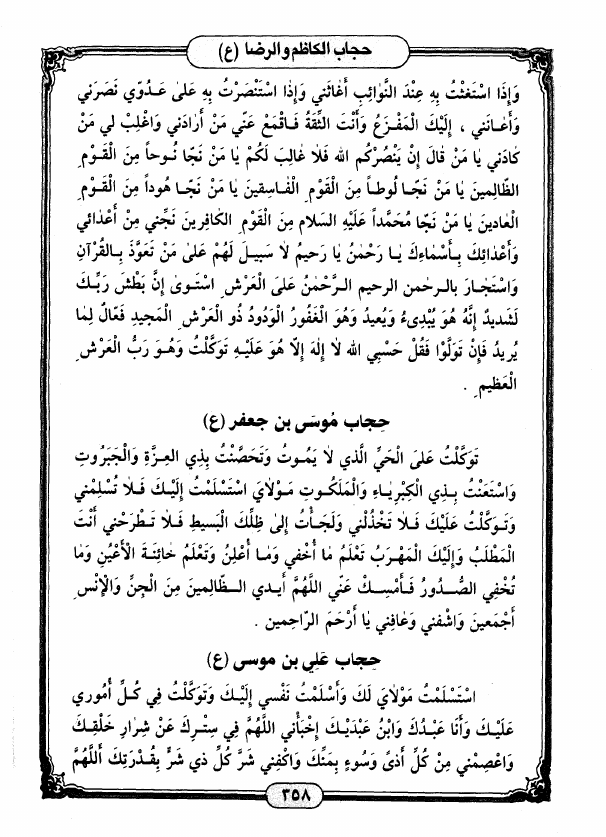 حجاب الكاظم والرضا (ع)
وَإِذَا اسْتَغَثْتُ بِهِ عِنْدَ النَّوَائِبِ أَغَاثَني وَإِذَا اسْتَنْصَرْتُ بِهِ عَلىٰ عَدُوّي نَصَرَني
وَأَعَانَني ، إِلَيْكَ الْمَفْزَعُ وَأَنْتَ الثِّقَةُ فَاقْمَعْ عَنّي مَنْ أَرَادَني وَاغْلِبْ لي مَنْ
كَادَني يَا مَنْ قَالَ إِنْ يَنْصُرْكُم الله فَلاٰ غالِبَ لَكُمْ يَا مَنْ نَجّا نُوحاً مِنَ الْقَوْمِ
الظّالِمينَ يَا مَنْ نَجّا لُوطاً مِنَ الْقَوْمِ الْفَاسِقينَ يَا مَنْ نَجّا هُوداً مِنَ الْقَوْمِ
الْعادينَ يَا مَنْ نَجّا مُحَمَّداً عَلَيْهِ السَّلام مِنَ الْقَوْمِ الكَافِرينَ نَجِّني مِنْ أَعْدَائي
وَأَعْدَائِكَ بِأَسْمَاءِكَ يَا رَحْمٰنُ يَا رَحيمُ لاٰ سَبيلَ لَهُمْ عَلىٰ مَنْ تَعَوَّذَ بِالقُرْآنِ
وَاسْتَجَارَ بالرحمن الرحيم الرَّحْمٰنُ عَلىَ الْعَرْشِ اسْتَوىٰ إِنَّ بَطْشَ رَبِّكَ
لَشَديدٌ إِنَّهُ هُوَ يُبْدِىءُ وَيُعيدُ وَهُوَ الْغَفُورُ الْوَدُودُ ذُو الْعَرْشِ المَجيدِ فَعّالٌ لِمٰا
يُريدُ فَإِنْ تَوَلَّوْا فَقُلْ حَسْبِي الله لاٰ إِلٰهَ إِلاّ هُوَ عَلَيْهِ تَوَكَّلْتُ وَهُوَ رَبُّ الْعَرْشِ
الْعَظيمِ .
حجاب مُوسَى بن جعفر (ع)
تَوَكَّلْتُ عَلىَ الْحَيِّ الَّذي لاٰ يَمُوتُ وَتَحَصَّنْتُ بِذِي العِزَّةِ وَالْجَبَرُوتِ
وَاسْتَعَنْتُ بِذِي الْكِبْرِيَاءِ وَالْمَلَكُوتِ مَوْلاٰيَ اسْتَسْلَمْتُ إِلَيْكَ فَلاٰ تُسْلِمْني
وَتَوَكَّلْتُ عَلَيْكَ فَلاٰ تَخْذُلْني وَلَجَأْتُ إِلىٰ ظِلِّكَ الْبَسيطِ فَلاٰ تَطْرَحْني أَنْتَ
الْمَطْلَبُ وَإِلَيْكَ الْمَهْرَبُ تَعْلَمُ مٰا أُخْفي وَمٰا أُعْلِنُ وَتَعْلَمُ خٰائِنَةَ الأَعْيُنِ وَمٰا
تُخْفِي الصُّدُورُ فَأَمْسِكْ عَنّي اللَّهُمَّ أَيدي الظّالِمينَ مِنَ الْجِنِّ وَالإِنْسِ
أَجْمَعينَ وَاشْفني وَعٰافِني يٰا أَرْحَمَ الرّاحِمين .
حجاب عَلي بن موسى (ع)
اسْتَسْلَمْتُ مَوْلاٰيَ لَكَ وَأَسْلَمْتُ نَفْسي إِلَيْكَ وَتَوَكَّلْتُ فِي كُلِّ أُمُوري
عَلَيْكَ وَأَنَا عَبْدُكَ وَابْنُ عَبْدَيْكَ إِخْبَأْني اللَّهُمَّ فِي سِتْرِكَ عَنْ شِرَارِ خَلْقِكَ
وَاعْصِمْني مِنْ كُلِّ أَذىً وَسُوءٍ بِمَنِّكَ وَاكْفِني شَرَّ كُلِّ ذي شَرٍّ بِقُدْرَتِكَ اَللَّهُمَّ
٣٥٨